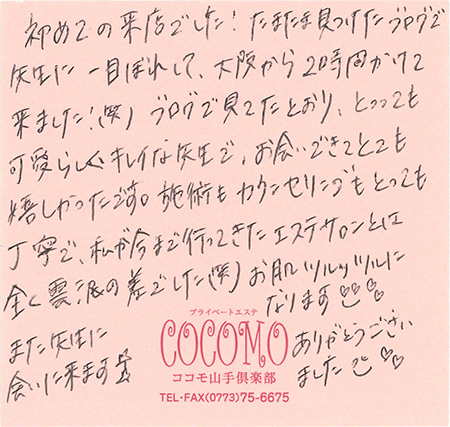 初めての来店でした！たまたま見つけたブログで
先生に一目ぼれして、大阪から2時間かけて
来ました！（笑）ブログで見てたとおり、とっても
可愛らしくキレイな先生で、お会いできてとても
嬉しかったです。施術もカウンセリングもとっても
丁寧で、私が今まで行ってきたエステサロンとは
全く雲泥の差でした（笑）お肌ツルッツルに
なります
プライベートエステ
COCOMO
ココモ山手倶楽部
TEL・FAX(0773)75-6675
また先生に
会いに来ます
ありがとうござい
ました